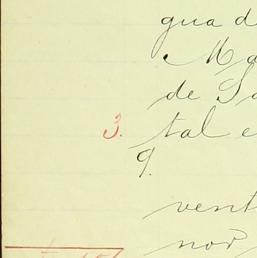 gua d
Ma
de Sa
3. tal e
9.
vent
nor